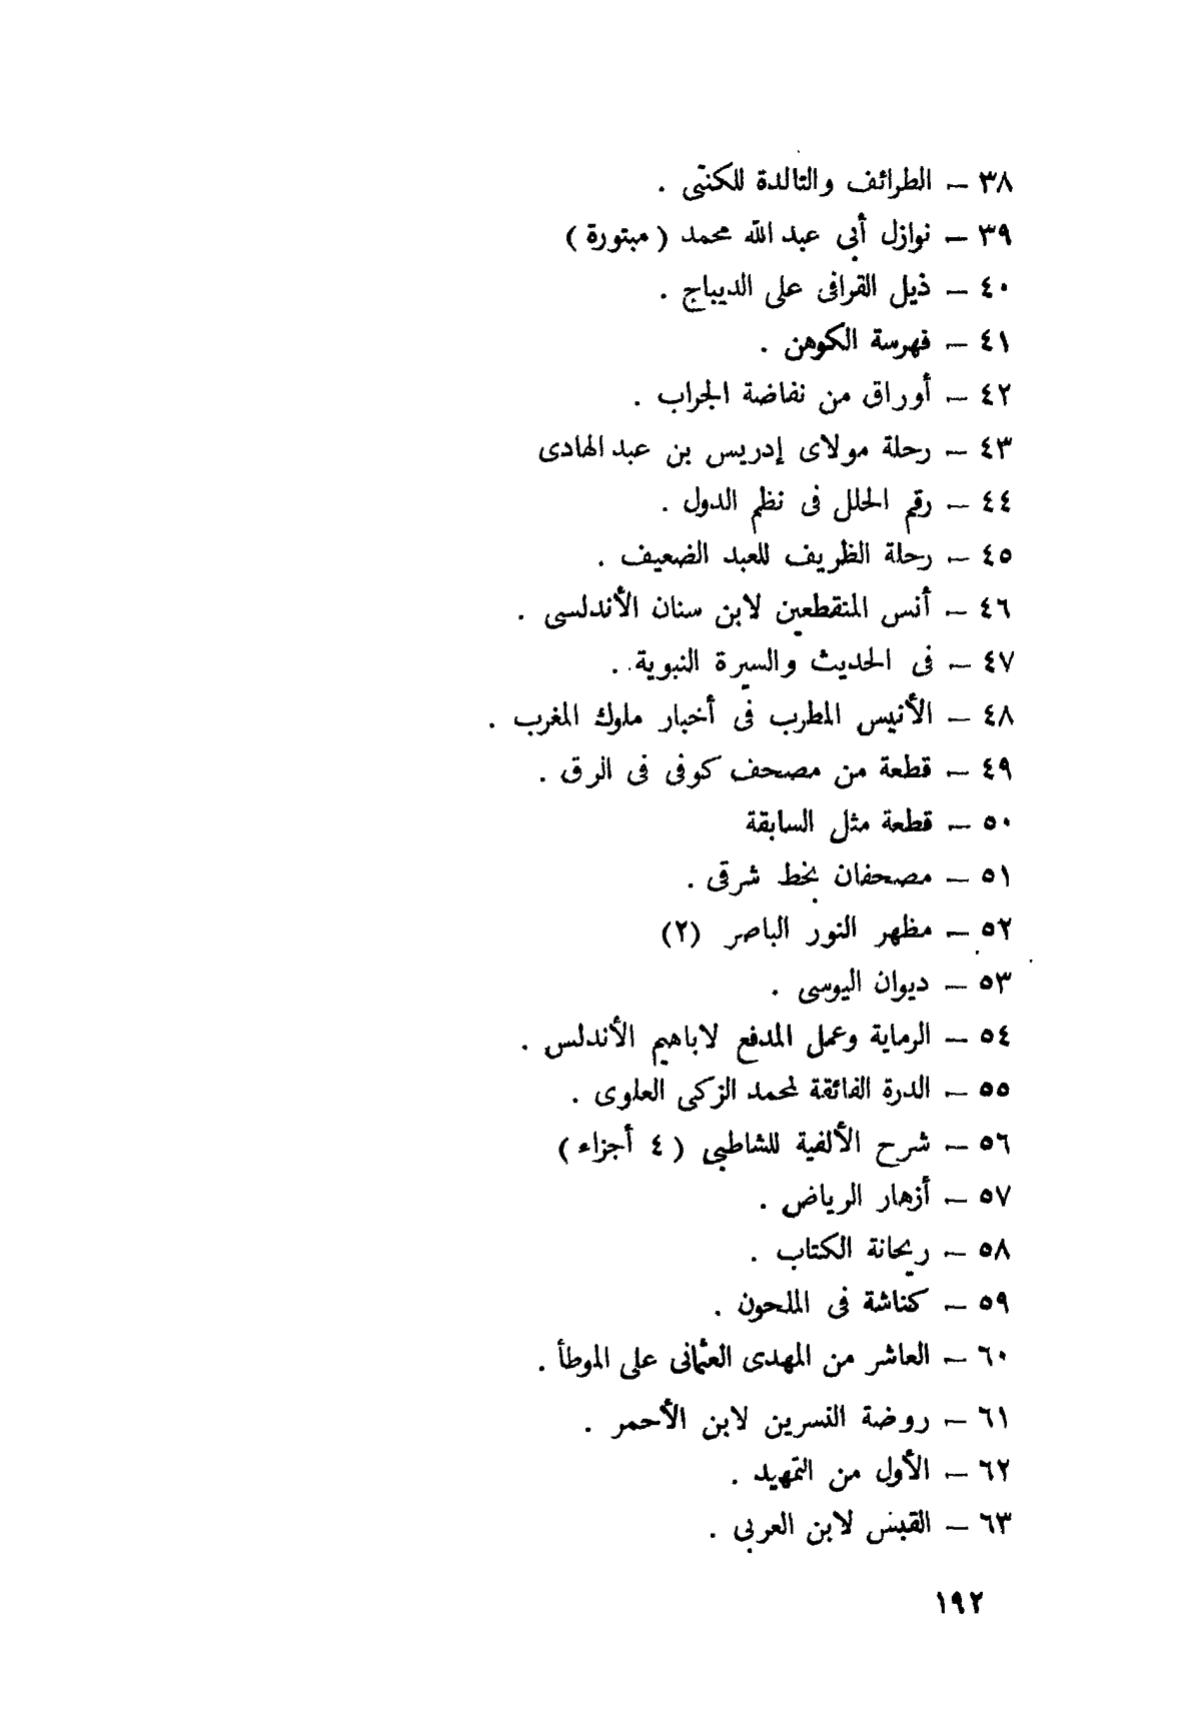 ٣٨ – الطرائف والتالدة للكنتى .
٣٩ – نوازل أبى عبد الله محمد ( مبتورة )
٤٠ – ذيل القرافى على الديباج .
٤١ – فهرسة الكوهن .
٤٢ – أوراق من نفاضة الجراب .
٤٣ – رحلة مولاى إدريس بن عبد الهادى
٤٤ – رقم الحلل فى نظم الدول .
٤٥ – رحلة الظريف للعبد الضعيف .
٤٦ – أنس المنقطعين لابن سنان الأندلسى .
٤٧ – فى الحديث والسيرة النبوية .
٤٨ – الأنيس المطرب فى أخبار ملوك المغرب .
٤٩ – قطعة من مصحف كوفى فى الرق .
٥٠ – قطعة مثل السابقة
٥١ – مصحفان بخط شرقى .
٥٢ – مظهر النور الباصر (٢)
٥٣ – ديوان اليوسى .
٥٤ – الرماية وعمل المدفع لاباهيم الأندلس .
٥٥ – الدرة الفائقة لمحمد الزكى العلوى .
٥٦ – شرح الألفية للشاطبى ( ٤ أجزاء )
٥٧ – أزهار الرياض .
٥٨ – ريحانة الكتاب .
٥٩ – كناشة فى الملحون .
٦٠ – العاشر من المهدى العثمانى على الموطأ .
٦١ – روضة النسرين لابن الأحمر .
٦٢ – الأول من التمهيد .
٦٣ – القبس لابن العربى .
١٩٢